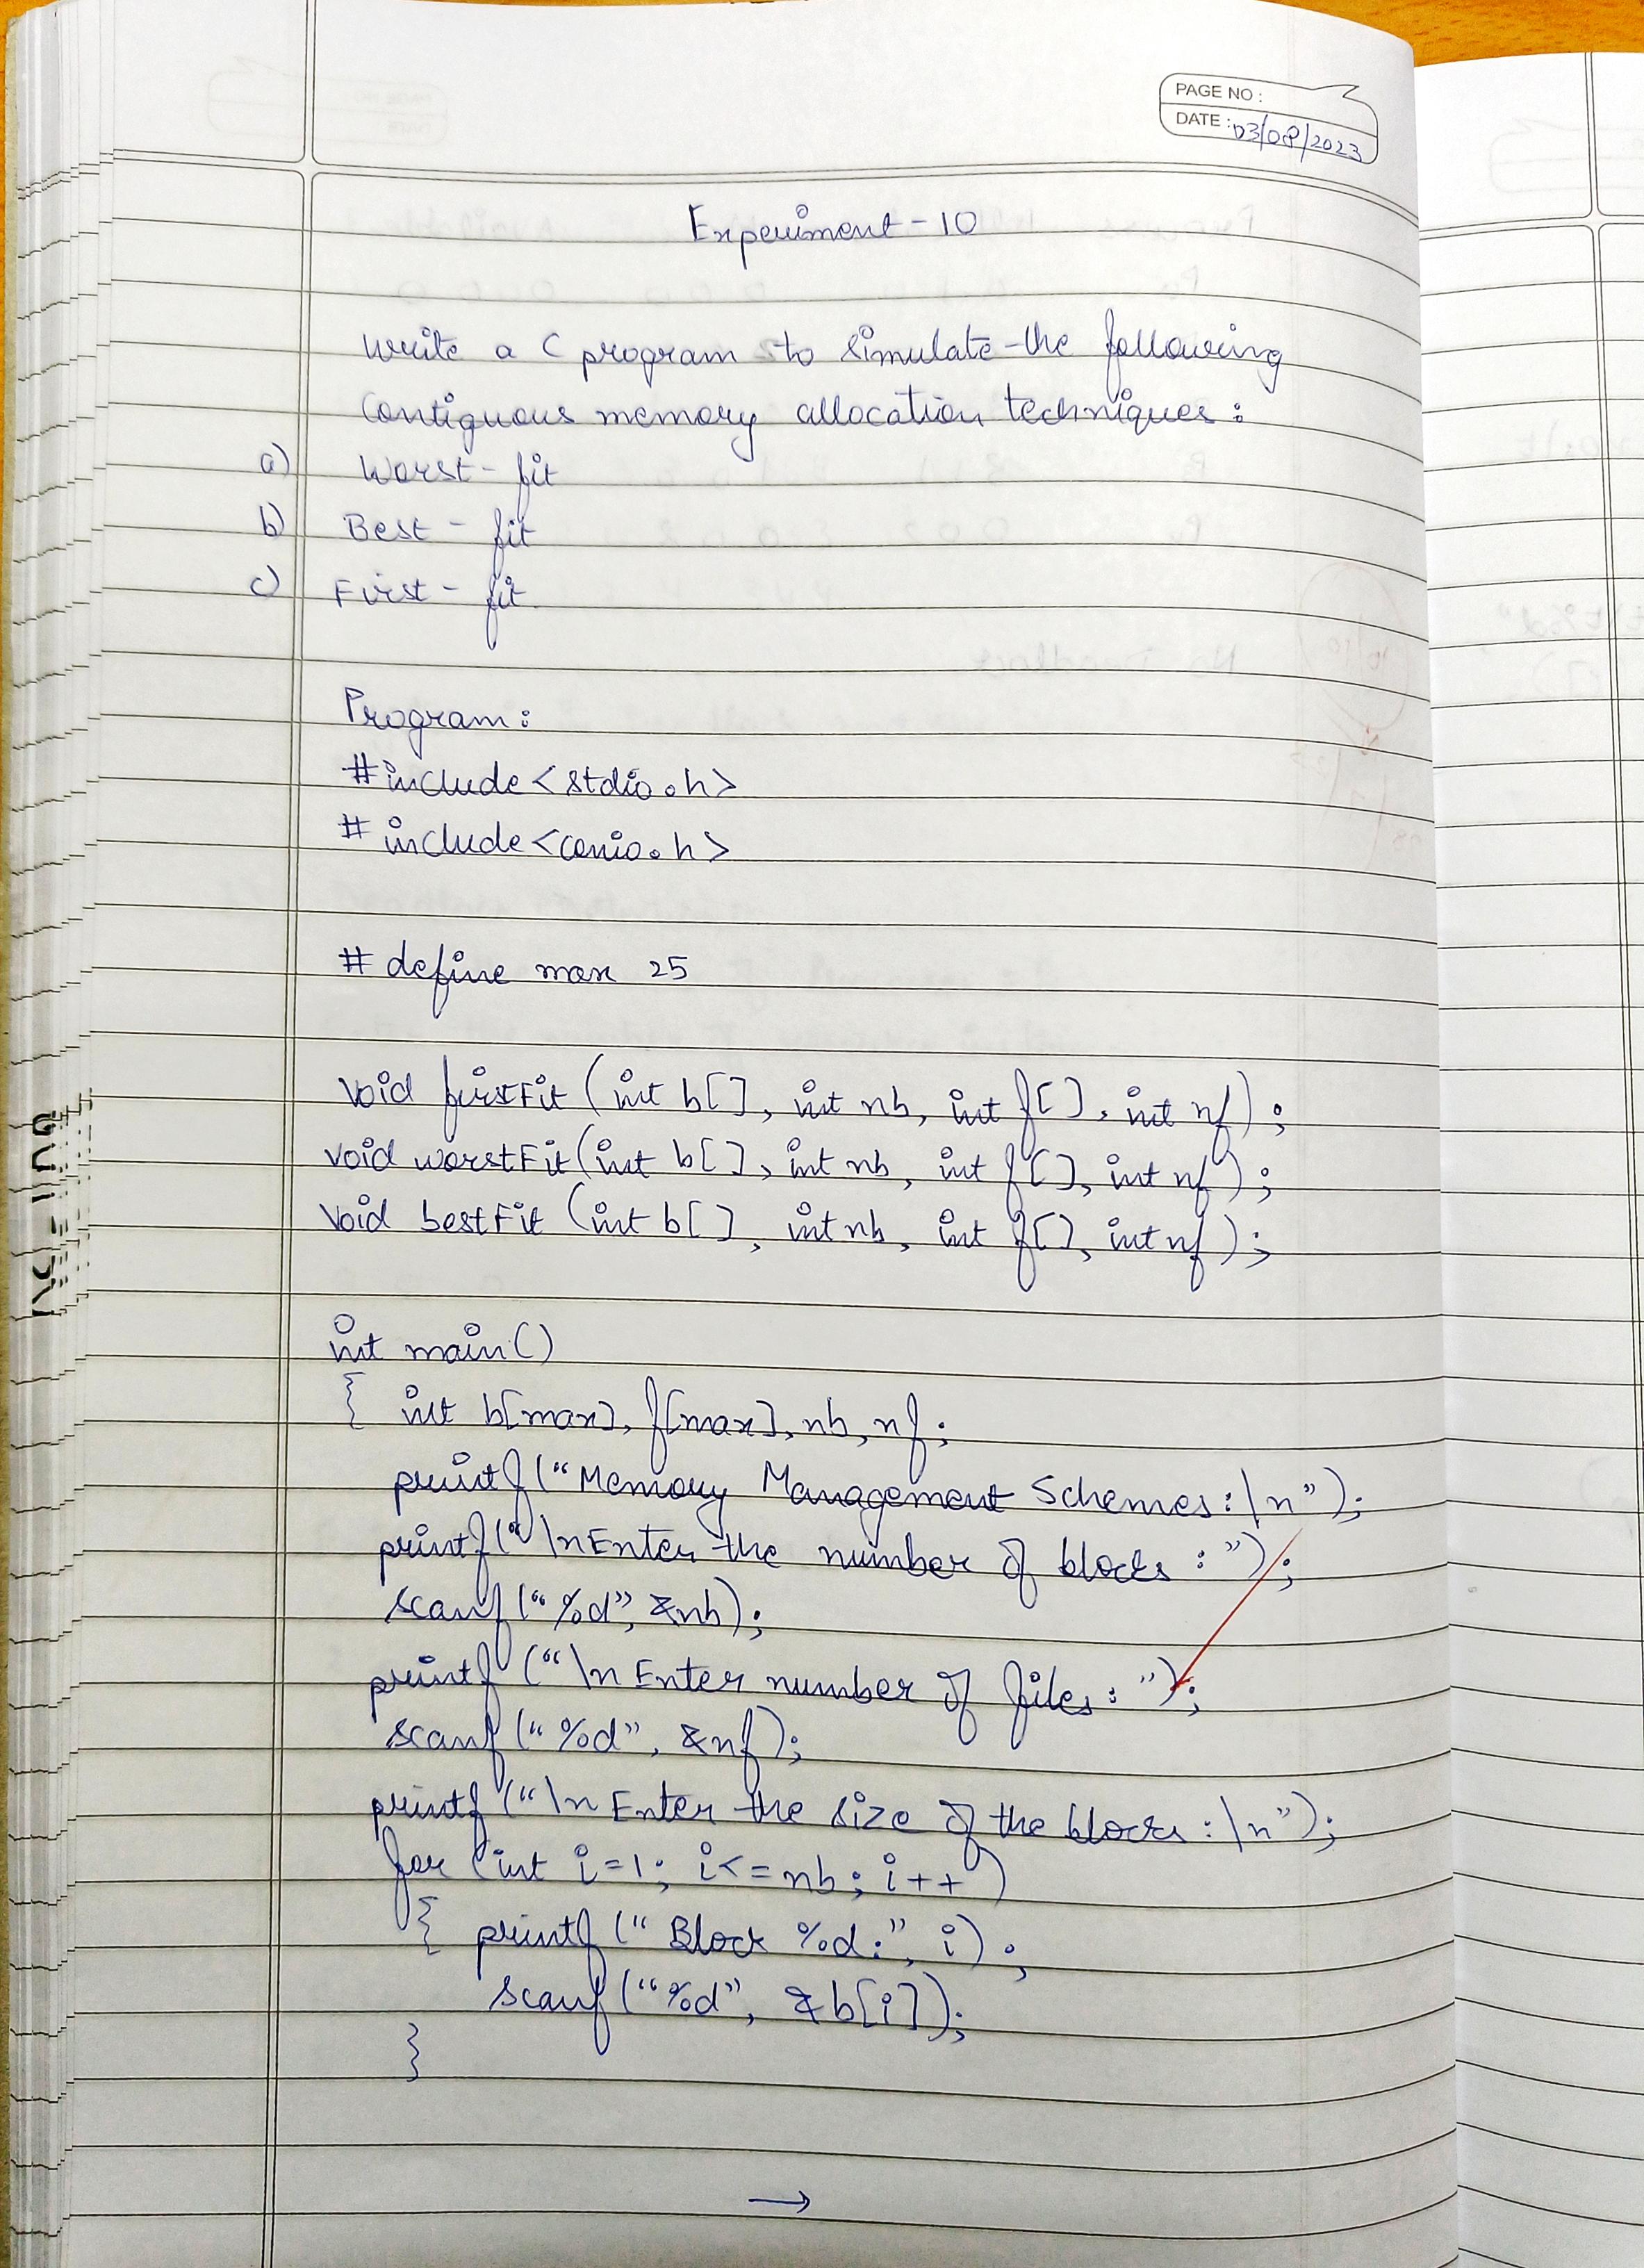 PAGE NO :
DATE : 03/08/2023
Experiment - 10
Write a C program to simulate the following
contiguous memory allocation techniques :
a) Worst - fit
b) Best - fit
c) First - fit
Program :
#include <stdio.h>
# include <conio.h>
# define max 25
void firstFit (int b[], int nb, int f[], int nf) ;
void worstFit (int b[], int nb, int f[], int nf) ;
void bestFit (int b[], int nb, int f[], int nf) ;
int main()
{ int b[max], f[max], nb, nf ;
printf ("Memory Management Schemes : \n") ;
printf ("\nEnter the number of blocks : ") ;
scanf ("%d", &nb) ;
printf ("\n Enter number of files : ") ;
scanf ("%d", &nf) ;
printf ("\n Enter the size of the blocks : \n") ;
for (int i = 1 ; i <= nb ; i++)
{ printf (" Block %d :", i) ;
scanf ("%d", &b[i]) ;
}
→